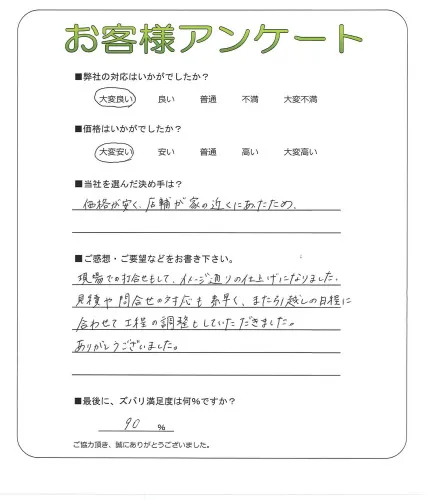 お客様アンケート
■弊社の対応はいかがでしたか？
大変良い 良い 普通 不満 大変不満
■価格はいかがでしたか？
大変安い 安い 普通 高い 大変高い
■当社を選んだ決め手は？
価格が安く、店舗が家の近くにあったため、
■ご感想・ご要望などをお書き下さい。
現場での打合せもして、イメージ通りの仕上げになりました。
見積や問合せの対応も素早く、また引越しの日程に
合わせて工程の調整をしていただきました。
ありがとうございました。
■最後に、ズバリ満足度は何％ですか？
90 ％
ご協力頂き、誠にありがとうございました。